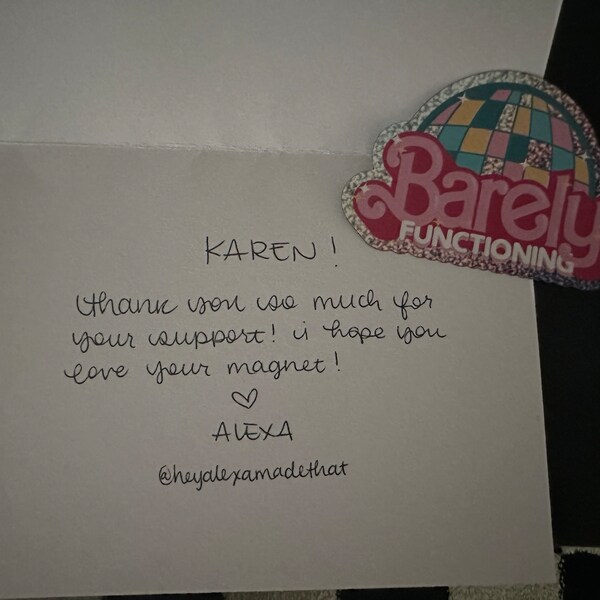 Barely
FUNCTIONING
KAREN!
thank you so much for
your support! i hope you
love your magnet!
♡
ALEXA
@heyalexamadethat